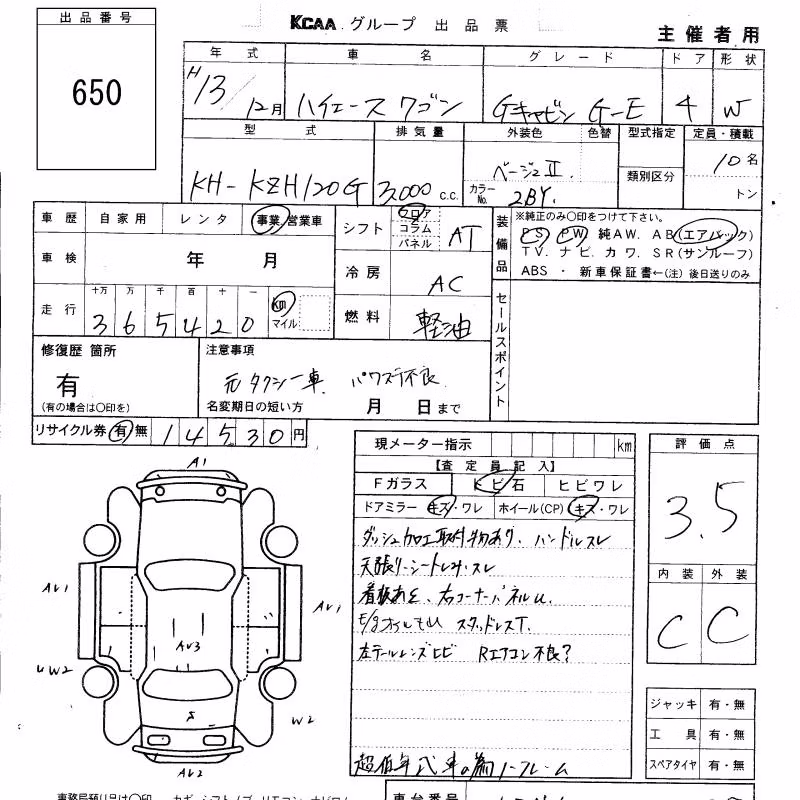 出品番号
650
KCAA グループ 出品票
主催者用
年式 車名 グレード ドア 形状
H13/12月 ハイエースワゴン Gキャビン G-E 4 W
型式 排気量 外装色 色替 型式指定 定員・積載
KH-KZH120G 3,000 c.c. ベージュII 類別区分 10名
カラーNo. 2BY. トン
車歴 自家用 レンタ 事業/営業車
車検 年 月
走行 十万 万 千 百 十 一
365420 km マイル
シフト フロア コラム パネル AT
冷房 AC
燃料 軽油
装備品
※純正のみ〇印をつけて下さい。
PS PW 純AW. AB(エアバック)
TV. ナビ. カワ. SR(サンルーフ)
ABS ・ 新車保証書←(注)後日送りのみ
セールスポイント
修復歴 箇所
有
(有の場合は〇印を)
注意事項
元タクシー車 パワステ不良
名変期日の短い方 月 日まで
リサイクル券 有 無 14530円
現メーター指示 km
【査定員記入】
Fガラス トビ石 ヒビワレ
ドアミラー キズ・ワレ ホイール(CP) キズ・ワレ
ダッシュ加工取付物あり. ハンドルスレ
天張り-シート スレ
看板あと、右コーナーパネルU
E/gオイルモレ スタッドレスT.
左テールレンズヒビ Rエアコン不良?
超低年式車の為ノークレーム
評価点
3.5
内装 外装
C C
ジャッキ 有・無
工具 有・無
スペアタイヤ 有・無
A1
AU1
AU1
AU3
UW2
W2
S
AU2
車台番号